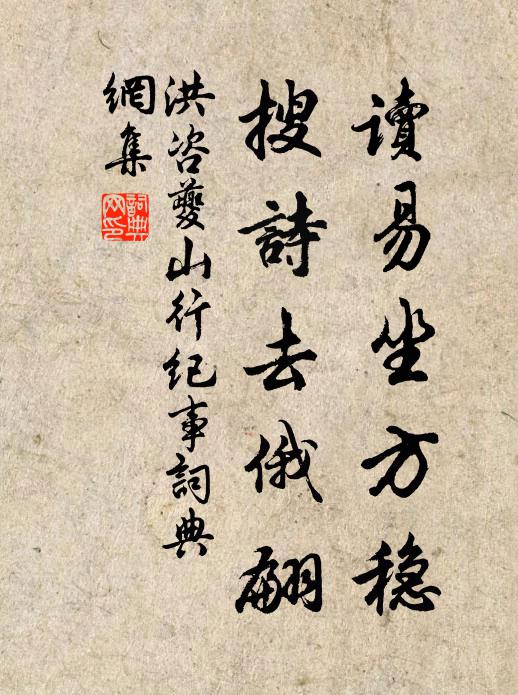 讀易坐方穩
搜詩去俄翩
洪咨夔山行纪事詞典
網集
詞典
网印